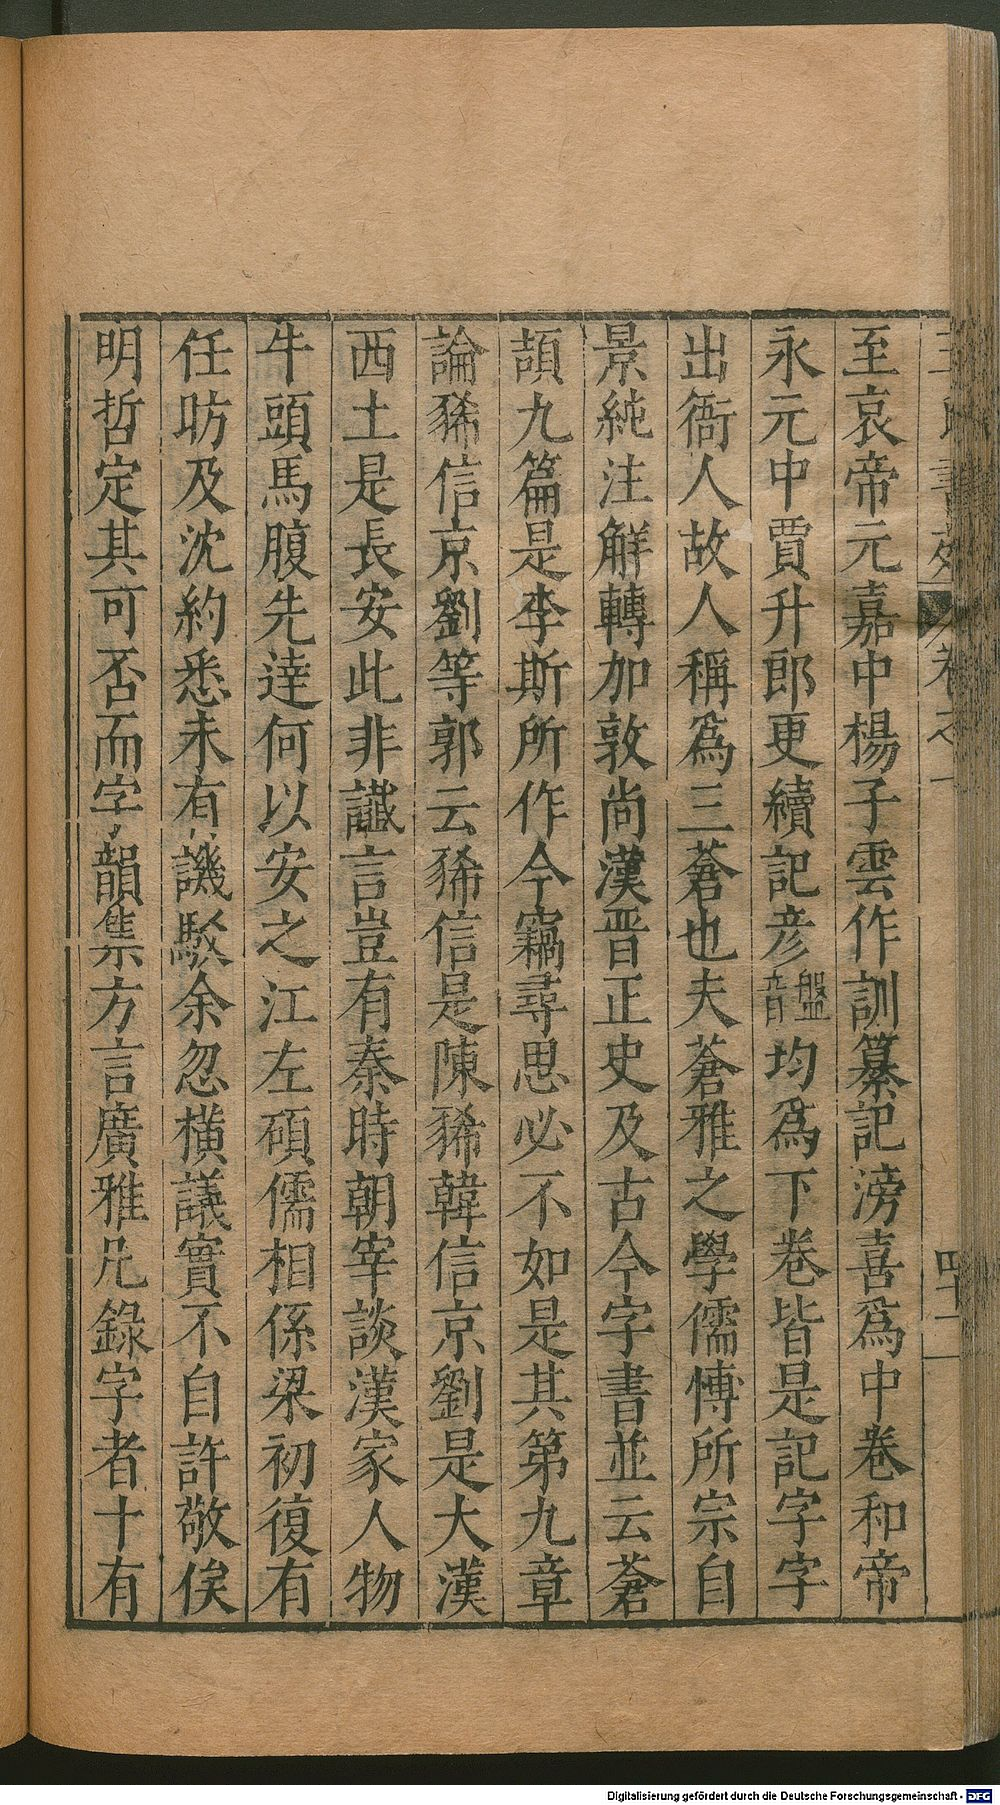 至哀帝元嘉中楊子雲作訓纂記滂喜爲中卷和帝
永元中賈升郎更續記彦盤音均爲下卷皆是記字字
出衙人故人稱爲三蒼也夫蒼雅之學儒愽所宗自
景純注觧轉加敦尚漢晋正史及古今字書並云蒼
頡九篇是李斯所作今竊尋思必不如是其第九章
論豨信京劉等郭云豨信是陳豨韓信京劉是大漢
西土是長安此非讖言豈有秦時朝宰談漢家人物
牛頭馬腹先達何以安之江左碩儒相係梁初復有
任昉及沈約悉未有譏駁余忽横議實不自許敬俟
明哲定其可否而字韻集方言廣雅凡錄字者十有
書苑 卷之一 四十二
Digitalisierung gefördert durch die Deutsche Forschungsgemeinschaft - DFG